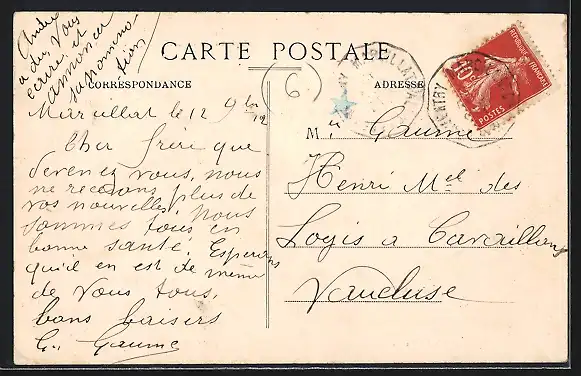 André
a du vous
écrire et
annoncer
sa nomina
tion
CARTE POSTALE
CORRESPONDANCE
ADRESSE
6
Marcillat le 12 9bre
12
Cher frère que
devenez vous, nous
ne recevons plus de
vos nouvelles, nous
sommes tous en
bonne santé. Esperons
qu'il en est de même
de vous tous.
bons baisers
G. Gaume
Mr Gaume
Henri Md des
Logis a Cavaillon
Vaucluse
REPUBLIQUE FRANÇAISE
10c
POSTES